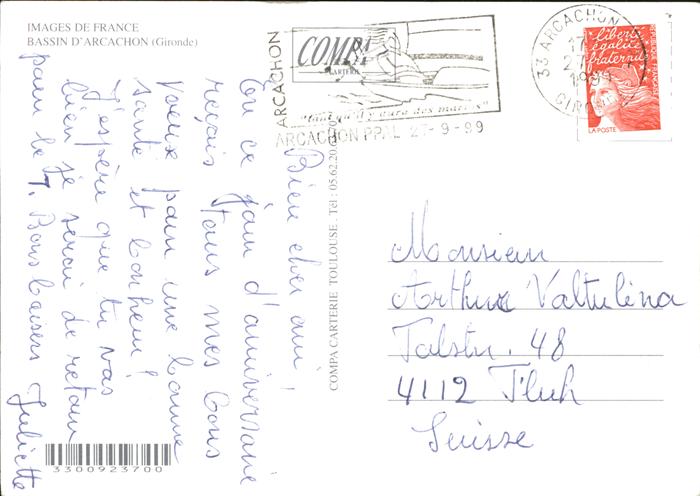 IMAGES DE FRANCE
BASSIN D'ARCACHON (Gironde)
Bien cher ami,
En ce jour d'anniversaire
reçois tous mes bons
voeux pour une bonne
santé et bonheur!
J'espère que tu vas
bien je serai de retour
pour le 7. Bons baisers Juliette
3300923700
COMPA CARTERIE TOULOUSE. Tél : 05.62.20
COMPA
CARTERIE
ARCACHON
"tant qu'il y aura des marées"
ARCACHON PPAL 27-9-99
33 ARCACHON
17
27
1999
GIRONDE
liberté
égalité
fraternité
RÉPUBLIQUE FRANÇAISE
LA POSTE
Monsieur
Arthur Valtulina
Talstr. 48
4112 Flüh
Suisse